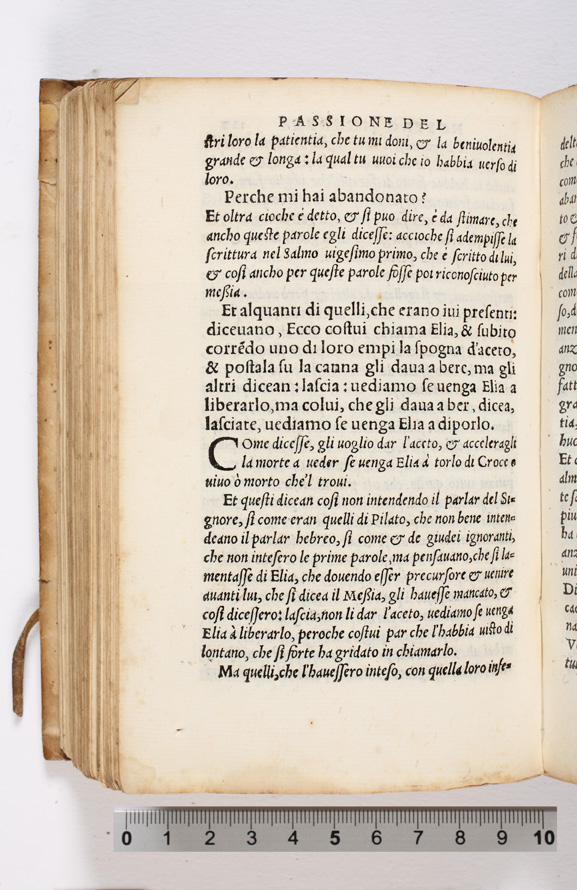 PASSIONE DEL
ſtri loro la patientia, che tu mi doni, & la beniuolentia
grande & longa : la qual tu uuoi che io habbia uerſo di
loro.
Perche mi hai abandonato ?
Et oltra cioche é detto, & ſi puo dire, é da ſtimare, che
ancho queſte parole egli diceſſe: accioche ſi adempiſſe la
ſcrittura nel Salmo uigeſimo primo, che é ſcritto di lui,
& coſi ancho per queſte parole foſſe poi riconoſciuto per
meßia.
Et alquanti di quelli, che erano iui preſenti:
diceuano, Ecco coſtui chiama Elia, & ſubito
corrédo uno di loro empi la ſpogna d'aceto,
& poſtala ſu la canna gli daua a bere, ma gli
altri dicean : laſcia : uediamo ſe uenga Elia a
liberarlo, ma colui, che gli daua a ber, dicea,
laſciate, uediamo ſe uenga Elia a diporlo.
COme diceſſe, gli uoglio dar l'aceto, & acceleragli
la morte a ueder ſe uenga Elia à torlo di Croce o
uiuo ò morto che'l troui.
Et queſti dicean coſi non intendendo il parlar del Si=
gnore, ſi come eran quelli di Pilato, che non bene inten=
deano il parlar hebreo, ſi come & de giudei ignoranti,
che non inteſero le prime parole, ma penſauano, che ſi la=
mentaſſe di Elia, che douendo eſſer precurſore & uenire
auanti lui, che ſi dicea il Meßia, gli haueſſe mancato, &
coſi diceſſero: laſcia, non li dar l'aceto, uediamo ſe uenga
Elia à liberarlo, peroche coſtui par che l'habbia uiſto di
lontano, che ſi forte ha gridato in chiamarlo.
Ma quelli, che l'haueſſero inteſo, con quella loro inſe=
0 1 2 3 4 5 6 7 8 9 10